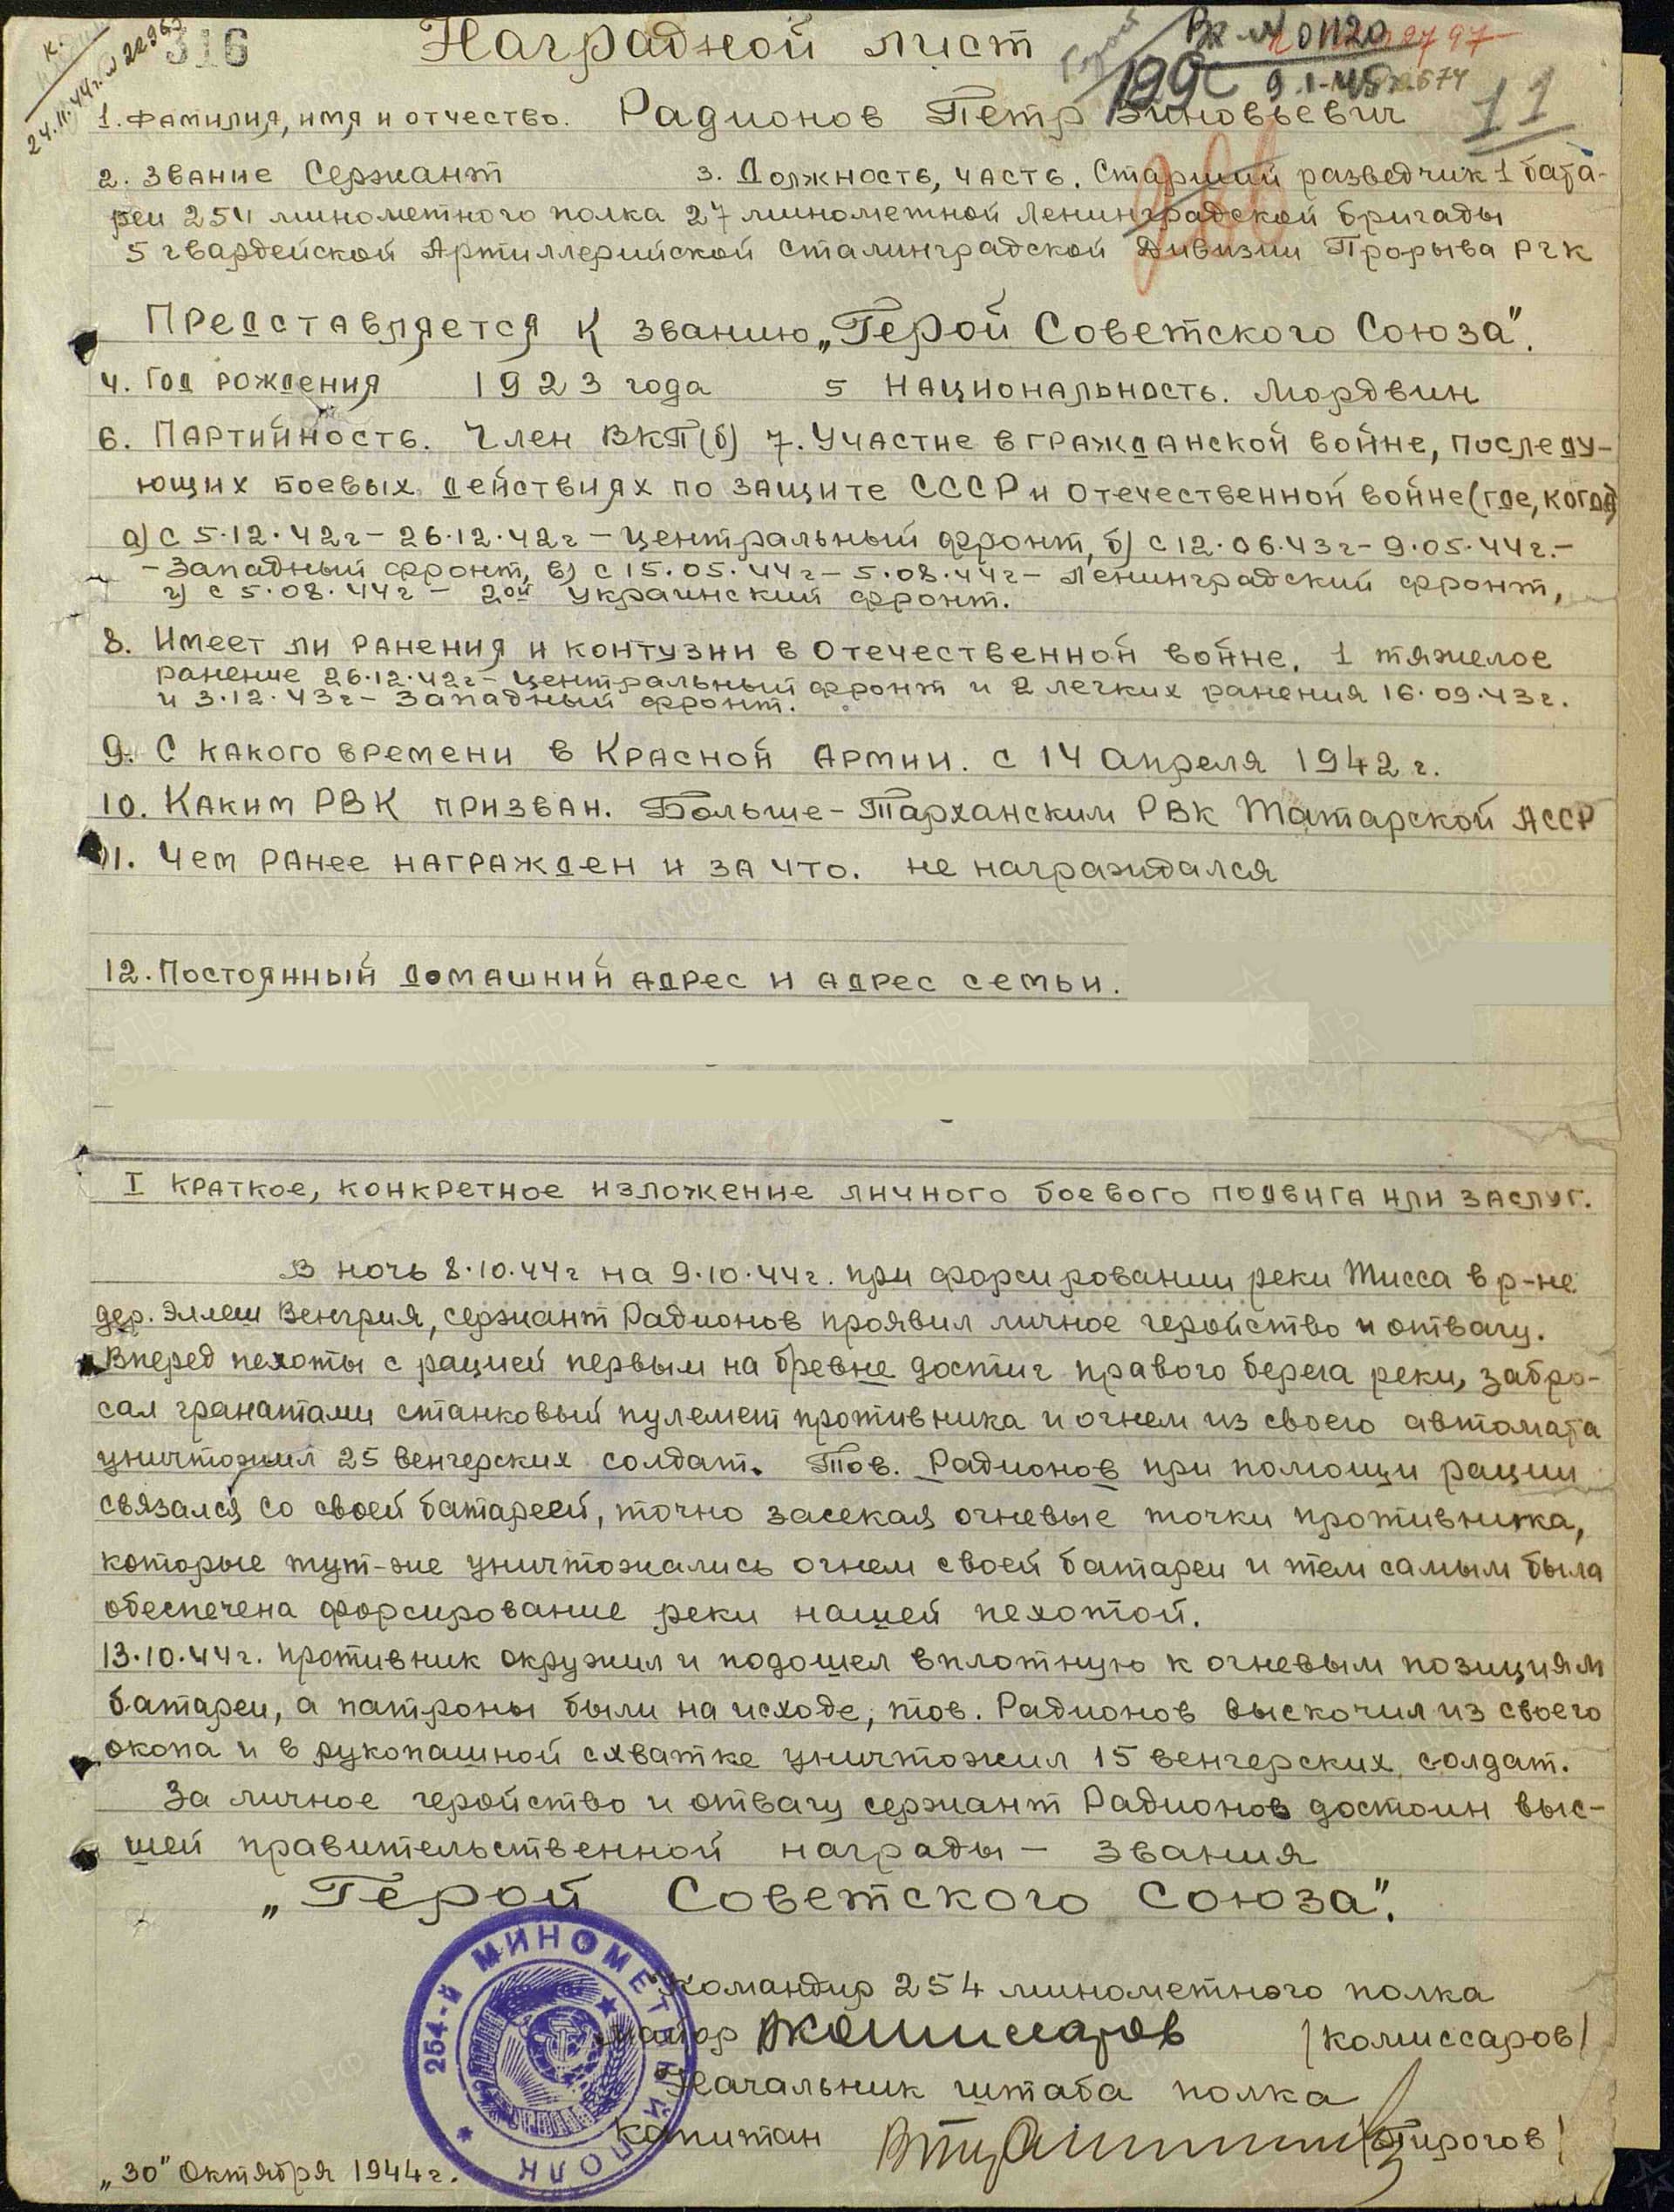 316
Наградной лист
№ 01120
9.1-45
11
1. Фамилия, имя и отчество. Радионов Петр Зиновьевич
2. Звание Сержант 3. Должность, часть. Старший разведчик 1 бата-
реи 254 минометного полка 27 минометной Ленинградской бригады
5 гвардейской Артиллерийской Сталинградской Дивизии Прорыва РГК
Представляется к званию „Герой Советского Союза".
4. Год рождения 1923 года 5 Национальность. Мордвин
6. Партийность. Член ВКП(б) 7. Участие в гражданской войне, последу-
ющих боевых действиях по защите СССР и отечественной войне (где, когда)
а) с 5.12.42г – 26.12.42г – Центральный фронт, б) с 12.06.43г – 9.05.44г. –
– Западный фронт, в) с 15.05.44г – 5.08.44г – Ленинградский фронт,
г) с 5.08.44г – 2ой Украинский фронт.
8. Имеет ли ранения и контузии в Отечественной войне. 1 тяжелое
ранение 26.12.42г – Центральный фронт и 2 легких ранения 16.09.43г.
и 3.12.43г – Западный фронт.
9. С какого времени в Красной Армии. с 14 апреля 1942 г.
10. Каким РВК призван. Больше-Тарханским РВК Татарской АССР
11. Чем ранее награжден и за что. не награждался
12. Постоянный домашний адрес и адрес семьи.
I краткое, конкретное изложение личного боевого подвига или заслуг.
В ночь 8.10.44г на 9.10.44г. при форсировании реки Тисса в р-не
дер. Эллеш Венгрия, сержант Радионов проявил личное геройство и отвагу.
Вперед пехоты с рацией первым на бревне достиг правого берега реки, забро-
сал гранатами станковый пулемет противника и огнем из своего автомата
уничтожил 25 венгерских солдат. Тов. Радионов при помощи рации
связался со своей батареей, точно засекая огневые точки противника,
которые тут-же уничтожались огнем своей батареи и тем самым была
обеспечена форсирование реки нашей пехотой.
13.10.44г. противник окружил и подошел вплотную к огневым позициям
батареи, а патроны были на исходе, тов. Радионов выскочил из своего
окопа и в рукопашной схватке уничтожил 15 венгерских солдат.
За личное геройство и отвагу сержант Радионов достоин выс-
шей правительственной награды – звания
„Герой Советского Союза".
254-Й МИНОМЕТНЫЙ ПОЛК
Командир 254 минометного полка
майор Комиссаров /Комиссаров/
Начальник штаба полка
Капитан /Пирогов/
„30" Октября 1944г.